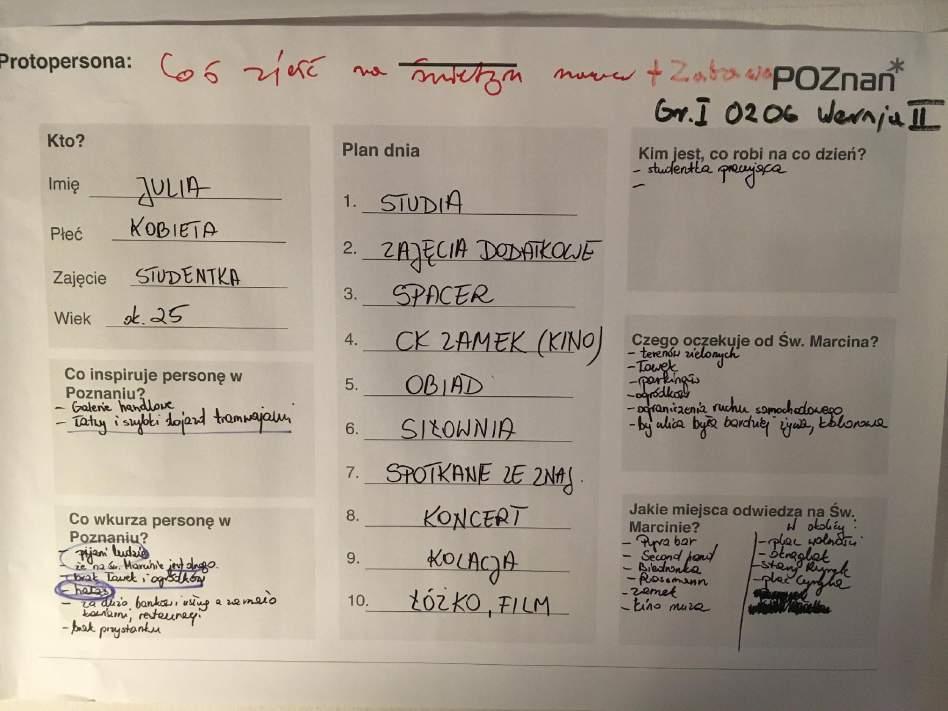 Protopersona: Coś zjeść na nowo + Zabawa POZnań*
Gr. I 0206 Wersja II
Kto?
Imię JULIA
Płeć KOBIETA
Zajęcie STUDENTKA
Wiek ok. 25
Co inspiruje personę w
Poznaniu?
- Galerie handlowe
- Łatwy i szybki dojazd tramwajami
Co wkurza personę w
Poznaniu?
- pijani ludzie
że na św. Marcinie jest drogo
- brak ławek i ogródków
- hałas
- za dużo banków i usług a za mało
kawiarni, restauracji
- brak przystanku
Plan dnia
1. STUDIA
2. ZAJĘCIA DODATKOWE
3. SPACER
4. CK ZAMEK (KINO)
5. OBIAD
6. SIŁOWNIA
7. SPOTKANE ZE ZNAJ.
8. KONCERT
9. KOLACJA
10. ŁÓŻKO, FILM
Kim jest, co robi na co dzień?
- studentka pracująca
-
Czego oczekuje od Św. Marcina?
- terenów zielonych
- ławek
- parkingów
- ogródków
- ograniczenia ruchu samochodowego
- by ulica była bardziej żywa, kolorowa
Jakie miejsca odwiedza na Św.
Marcinie?
- Pyra bar
- Second hand
- Biedronka
- Rossmann
- zamek
- kino muza
W okolicy:
- plac wolności
- okrąglak
- stary Rynek
- plac cyryla